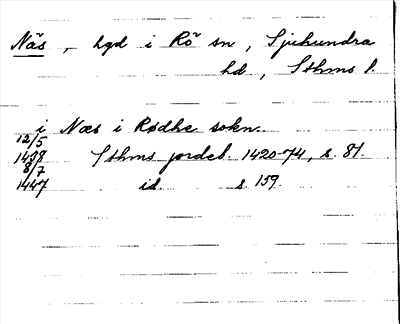 Näs, hgd i Rö sn, Sjuhundra
hd, Sthms l.
i Næs i Rødhe sokn.
12/5
1438 Sthms jordeb. 1420-74, s. 81.
8/7
1447 id. s. 159.